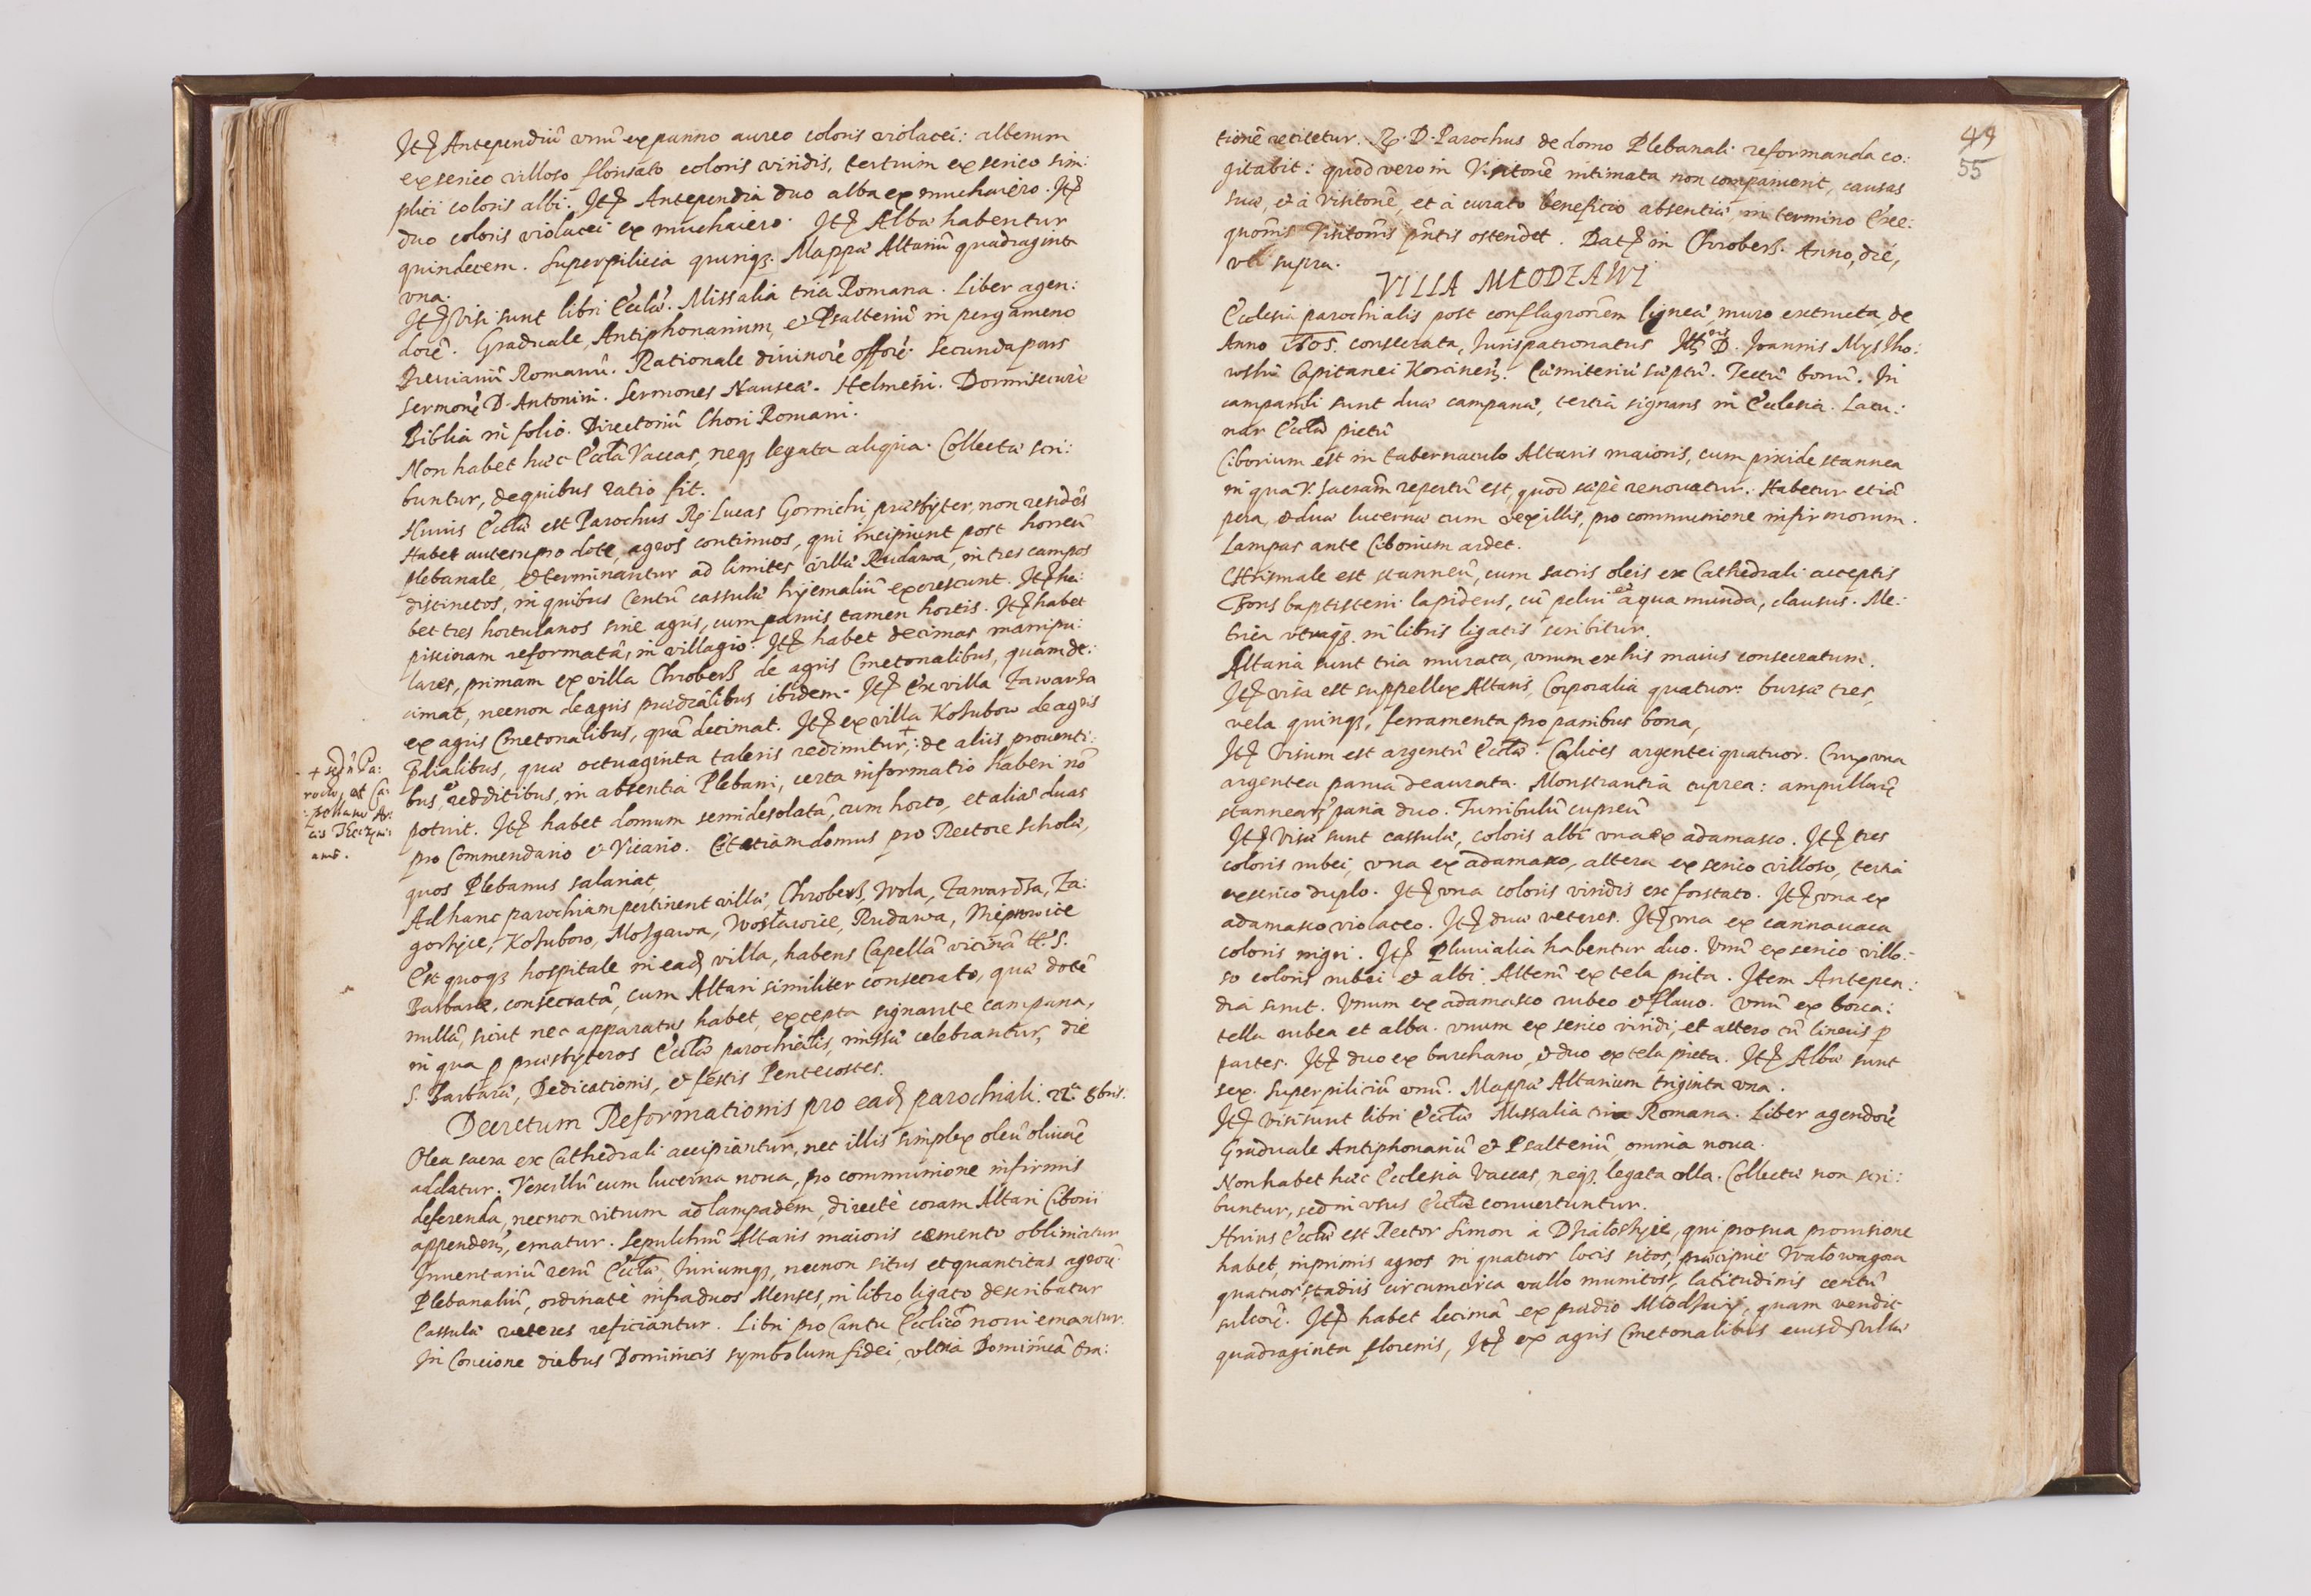 Itē Antependiū vnū ex panno aureo coloris violacei: alterum
ex serico villoso florisato coloris viridis, tertium ex serico sim:
plici coloris albi. Itē Antependia duo alba ex muchaiero. Itē
duo coloris violacei ex muchaiero. Itē Albæ habentur
quindecem. Superpilicia quinq₃. Mappæ Altariū quadraginta
vna.
Itē Visi sunt libri Eccl̄æ. Missalia tria Romana. Liber agen:
dorū. Graduale, Antiphonarium, et Psalteriū in pergameno
Breuiariū Romanū. Rationale diuinorū offorū. Secunda pars
Sermonū D. Antonini. Sermones Nauseæ. Helmesii. Dormisecurè
Biblia in folio. Directoriū Chori Romani.
Non habet hæc Eccl̄a Vaccas, neq₃ legata aliqua. Collectæ scri:
buntur, de quibus ratio fit.
Huius Eccl̄æ est Parochus R. Lucas Gornichi, præsbyter, non residēs
Habet autem pro dote, agros continuos, qui incipiunt post horreū
plebanale, et terminantur ad limites villæ Rudawa, in tres campos
distinctos, in quibus Centū cassulæ hyemaliū excrescunt. Itē ha:
bet tres hortulanos sine agris, cum paruis tamen hortis. Itē habet
piscinam reformatā, in villagio. Itē habet decimas manipu:
lares, primam ex villa Chroberz de agris Cmetonalibus, quam de:
cimat, necnon de agris prædialibus ibidem. Itē Ex villa Zawarza
ex agris Cmetonalibus, quā decimat. Itē ex villa Kozubow de agris
p̄dialibus, quæ octuaginta taleris redimitur,+: de aliis prouenti:
bus, et redditibus, in absentia Plebani, certa informatio haberi nō
potuit. Itē habet domum semidesolatā, cum horto, et alias duas
pro Commendario et Vicario. Est etiam domus pro Rectore Scholæ,
quos Plebanus salariat,
+ sed n̄ Pa:
rocho, et Ca
Ad hanc parochiam pertinent villæ, Chroberz, Wola, Zawarza, Za:
gorzyce, Kozubow, Mozgawa, Wosławice, Rudawa, Nieprowice
Est quoq₃ hospitale in eadē villa, habens Capellā vicinā tt. S.
Barbaræ, consecratā, cum Altari similiter consecrato, quæ dotē
nullā, sicut nec apparatus habet, excepta signante campana,
in qua p præsbyteros Eccl̄æ parochialis, missæ celebrantur, die
S. Barbaræ, Dedicationis, et festis Pentecostes.
Decretum Reformationis pro eadē parochiali. 22. 8bris.
Olea sacra ex Cathedrali accipiantur, nec illis simplex oleū oliuarū
addatur. Vexillū cum lucerna noua, pro communione infirmis
deferenda, necnon vitrum ad lampadem, directè coram Altari Ciborii
appendens, ematur. Sepulchrū Altaris maioris cæmento obliniatur
Inuentariū rerū Eccl̄æ, Iuriumq₃, necnon situs et quantitas agrorū
Plebanaliū, ordinatè infra duos Menses, in libro ligato describatur
Cassulæ veteres reficiantur. Libri pro Cantu Eccl̄ico noui emantur.
In Concione diebus Dominicis symbolum fidei, vltra Dominicā Ora:
44
55
tionē recitetur. R. D. Parochus de domo Plebanali reformanda co:
gitabit: quod vero in Visitonē intimata non comparuerit, causas
suæ, et à visitonē, et à curato beneficio absentiæ, in termino Exe:
quonis Visitonis p̄ntis ostendet. Datē in Chroberz. Anno, die,
vti supra.
VILLA MŁODZAWI
Ecclesia parochialis post conflagronem ligneæ, muro extructa, de
Anno 1505. consecrata, Iurispatronatus Mci D. Joannis Myszko:
wski Capitanei Korcinen̄. Cæmiteriū sæptū. Tectū bonū. In
campanili sunt duæ campanæ, tertia signans in Ecclesia. Lacu:
nar Eccl̄æ pictū
Ciborium est in tabernaculo Altaris maioris, cum pixide stannea
in qua V. Sacram̄ repertū est, quod sæpè renouatur. Habetur etiā
pera, et duæ lucernæ cum vexillis, pro communione infirmorum.
Lampas ante Ciborium ardet.
Chrismale est stanneū, cum sacris oleis ex Cathedrali acceptis
Fons baptisterii lapideus, cū pelui et aqua munda, clausus. Me:
trica vtraq₃ in libris ligatis scribitur.
Altaria sunt tria murata, vnum ex his maius consecratum.
Itē visa est suppellex Altaris, Corporalia quatuor. bursæ tres,
vela quinq₃, ferramenta pro panibus bona,
Itē Visum est argentū Eccl̄æ. Calices argentei quatuor. Crux vna
argentea parua deaurata. Monstrantia cuprea: ampullarū
stannearū paria duo. Turribulū cupreū
Itē Visæ sunt cassulæ, coloris albi vna ex adamasco. Itē tres
coloris rubei, vna ex adamasco, altera ex serico villoso, tertia
ex serico duplo. Itē vna coloris viridis ex forstato. Itē vna ex
adamasco violaceo. Itē duæ veteres. Itē vna ex cannauaca
coloris nigri. Itē Pluuialia habentur duo. Vnū ex serico villo:
so coloris rubei et albi. Alterū ex tela picta. Item Antepen:
dia sunt. Vnum ex adamasco rubeo et flauo. Vnū ex borca:
tella rubea et alba. Vnum ex serico viridi, et altero cū lineis p
partes. Itē duo ex barchano, et duo ex tela picta. Itē Albæ sunt
sex. Superpiliciū vnū. Mappæ Altarium triginta vna.
Itē Visi sunt libri Eccl̄æ Missalia tria Romana. Liber agendorū
Graduale Antiphonariū et Psalteriū, omnia noua.
Non habet hæc Ecclesia Vaccas, neq₃ legata vlla. Collectæ non scri:
buntur, sed in vsus Eccl̄æ conuertuntur.
Huius Eccl̄æ est Rector Simon à Dzialoszyce, qui pro sua prouisione
habet, inprimis agros in quatuor locis sitos, præcipuè
quatuor stadiis circumcirca vallo munitos, latitudinis centū
sulcorū. Itē habet decimā ex prædio Młodzawy, quam vendit
quadraginta florenis, Itē ex agris Cmetonalibus eiusdē villæ